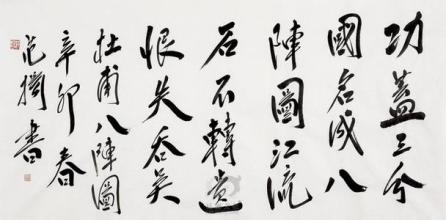 功蓋三分
國名成八
陣圖江流
石不轉遺
恨失吞吴
杜甫八陣圖
辛卯春
范書